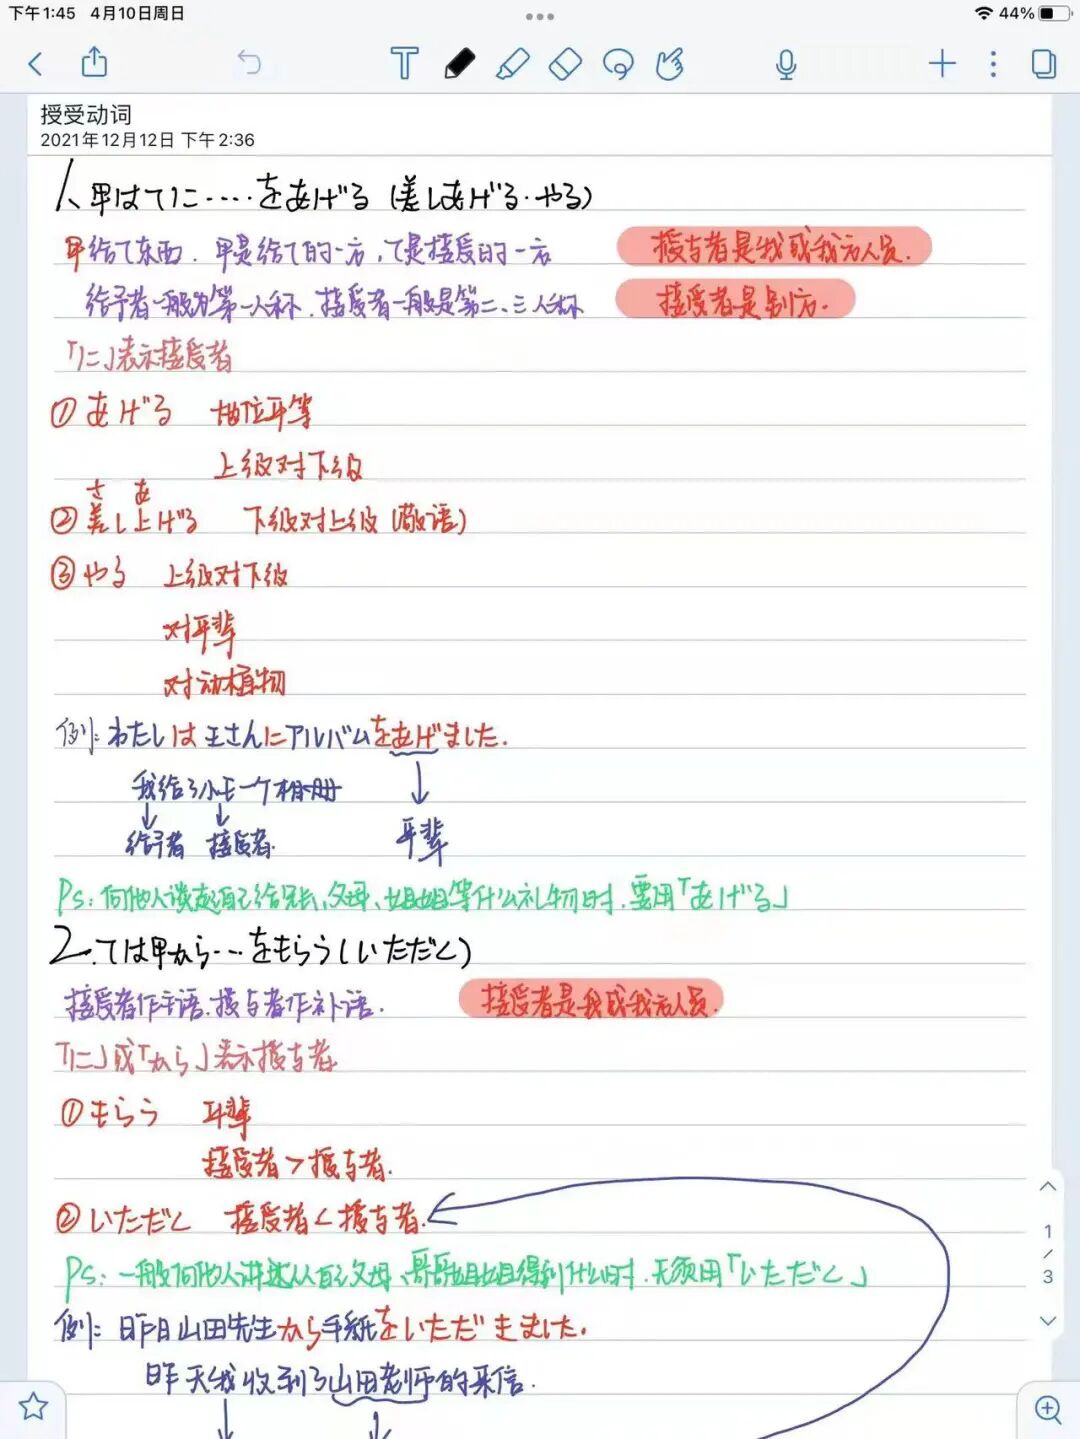 下午1:45 4月10日周日
44%
授受动词
2021年12月12日 下午2:36
1、甲は乙に‥‥をあげる (差しあげる·やる)
甲给乙东西. 甲是给乙的一方, 乙是接受的一方
授与者是我或我方人员.
给予者一般为第一人称. 接受者一般是第二、三人称
接受者是别方.
「に」表示接受者
① あげる 地位平等
上级对下级
さ あ
② 差し上げる 下级对上级 (敬语)
③ やる 上级对下级
对平辈
对动植物
例: わたしは王さんにアルバムをあげました.
我给了小王一个相册
给予者 接受者.
平辈
Ps: 向他人谈起自己给兄长、父母、姐姐等什么礼物时. 要用「あげる」
2.乙は甲から‥‥をもらう(いただく)
接受者作主语. 授与者作补语.
接受者是我或我方人员.
「に」或「から」表示授与者
① もらう 平辈
接受者>授与者.
② いただく 接受者<授与者.
Ps: 一般向他人讲述从自己父母、哥哥姐姐得到什么时. 无须用「いただく」
例: 昨日山田先生から手紙をいただきました.
昨天我收到了山田老师的来信.
1
/
3